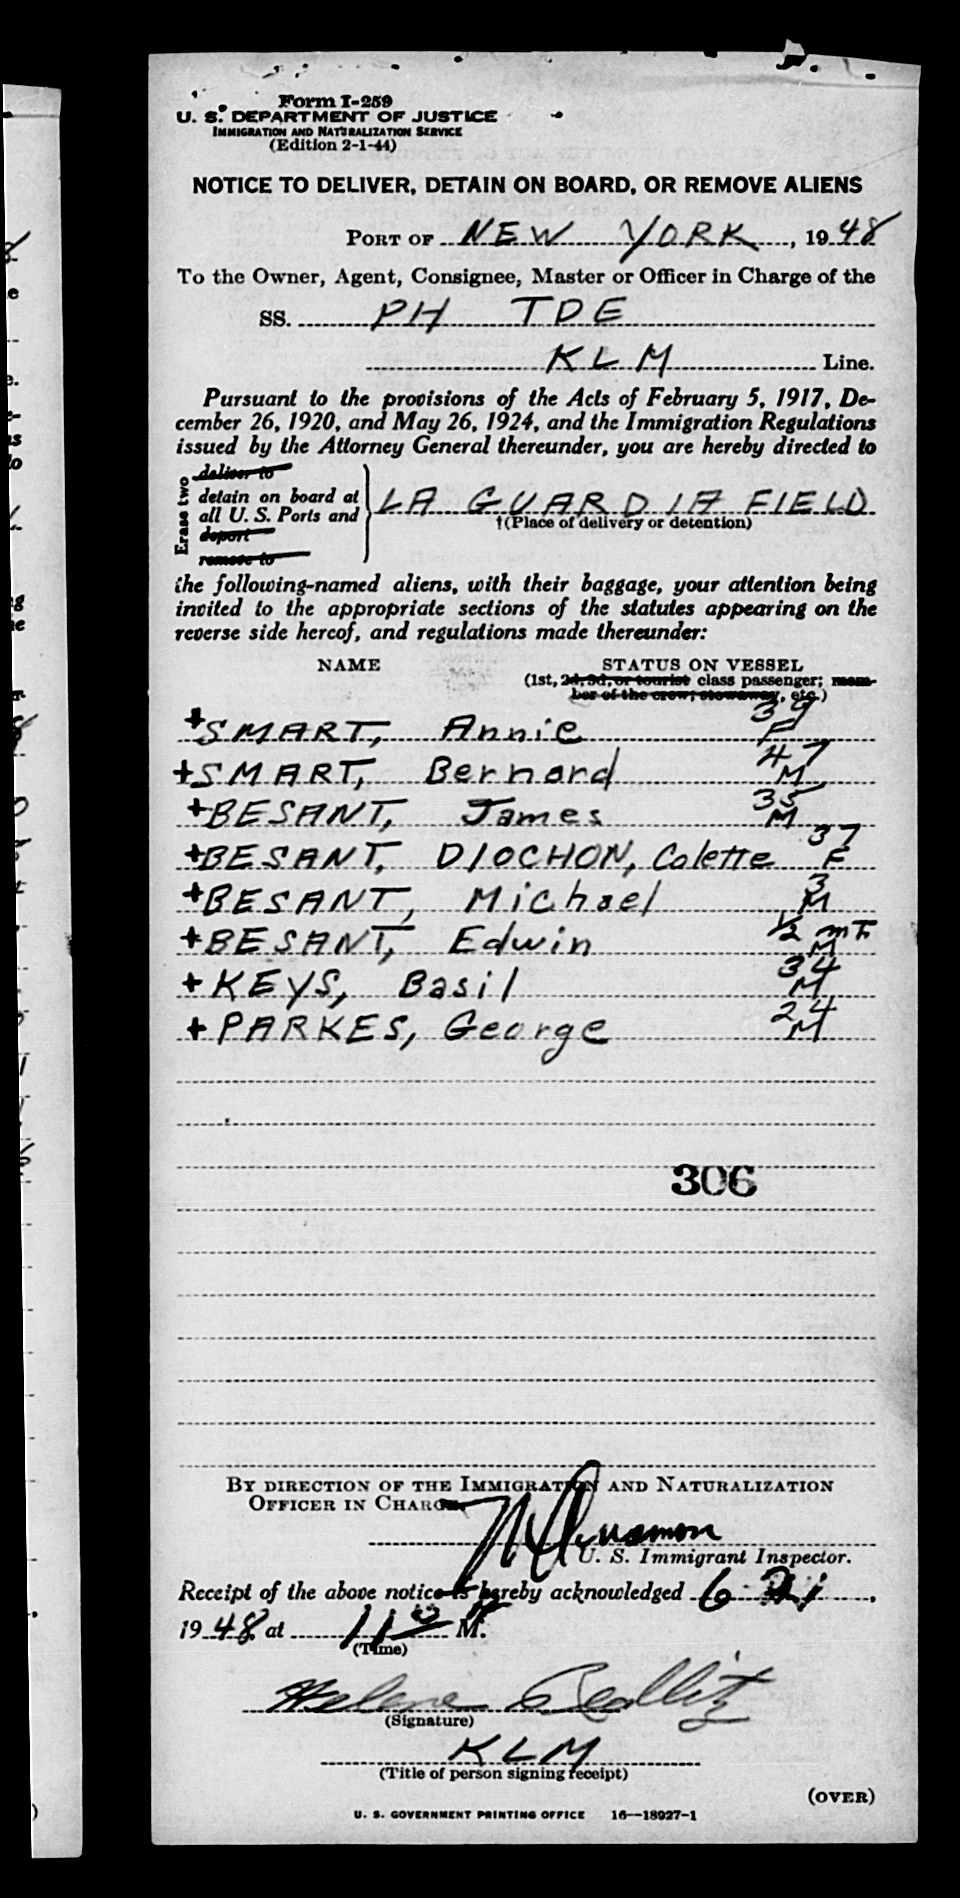 Form I-259
U. S. DEPARTMENT OF JUSTICE
IMMIGRATION AND NATURALIZATION SERVICE
(Edition 2-1-44)
NOTICE TO DELIVER, DETAIN ON BOARD, OR REMOVE ALIENS
PORT OF NEW YORK, 1948
To the Owner, Agent, Consignee, Master or Officer in Charge of the
SS. PH TDE
KLM Line.
Pursuant to the provisions of the Acts of February 5, 1917, De-
cember 26, 1920, and May 26, 1924, and the Immigration Regulations
issued by the Attorney General thereunder, you are hereby directed to
Erase two
deliver to
detain on board at
all U. S. Ports and
deport
remove to
LA GUARDIA FIELD
†(Place of delivery or detention)
the following-named aliens, with their baggage, your attention being
invited to the appropriate sections of the statutes appearing on the
reverse side hereof, and regulations made thereunder:
NAME STATUS ON VESSEL
(1st, 2d, 3d, or tourist class passenger; mem-
ber of the crew; stowaway, etc.)
+SMART, Annie 39 F
+SMART, Bernard 47 M
+BESANT, James 35 M
+BESANT, DIOCHON, Colette 37 F
+BESANT, Michael 3 M
+BESANT, Edwin 1/2 mth M
+KEYS, Basil 34 M
+PARKES, George 24 M
306
BY DIRECTION OF THE IMMIGRATION AND NATURALIZATION
OFFICER IN CHARGE
U. S. Immigrant Inspector.
Receipt of the above notice is hereby acknowledged 6
1948 at 11 M.
(Time)
Helene
(Signature)
KLM
(Title of person signing receipt)
(OVER)
U. S. GOVERNMENT PRINTING OFFICE 16—18927-1